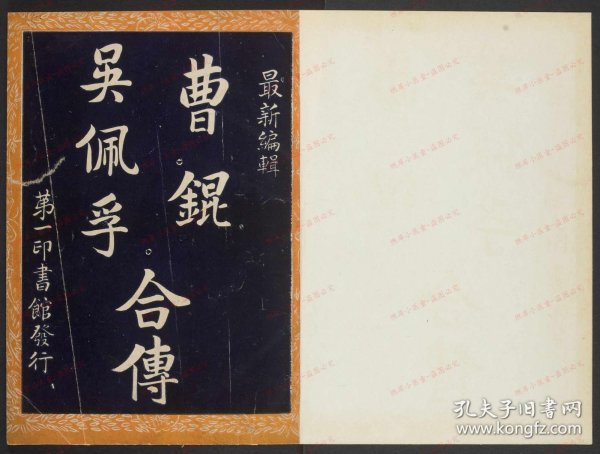 最新編輯
曹錕
吳佩孚
合傳
第一印書館發行
孔夫子旧书网
www.kongfz.com